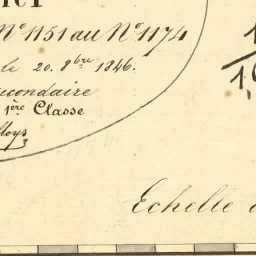 N° 1151 au N° 1174
le 20. 8bre 1846.
econdaire
1ère Classe
Echelle